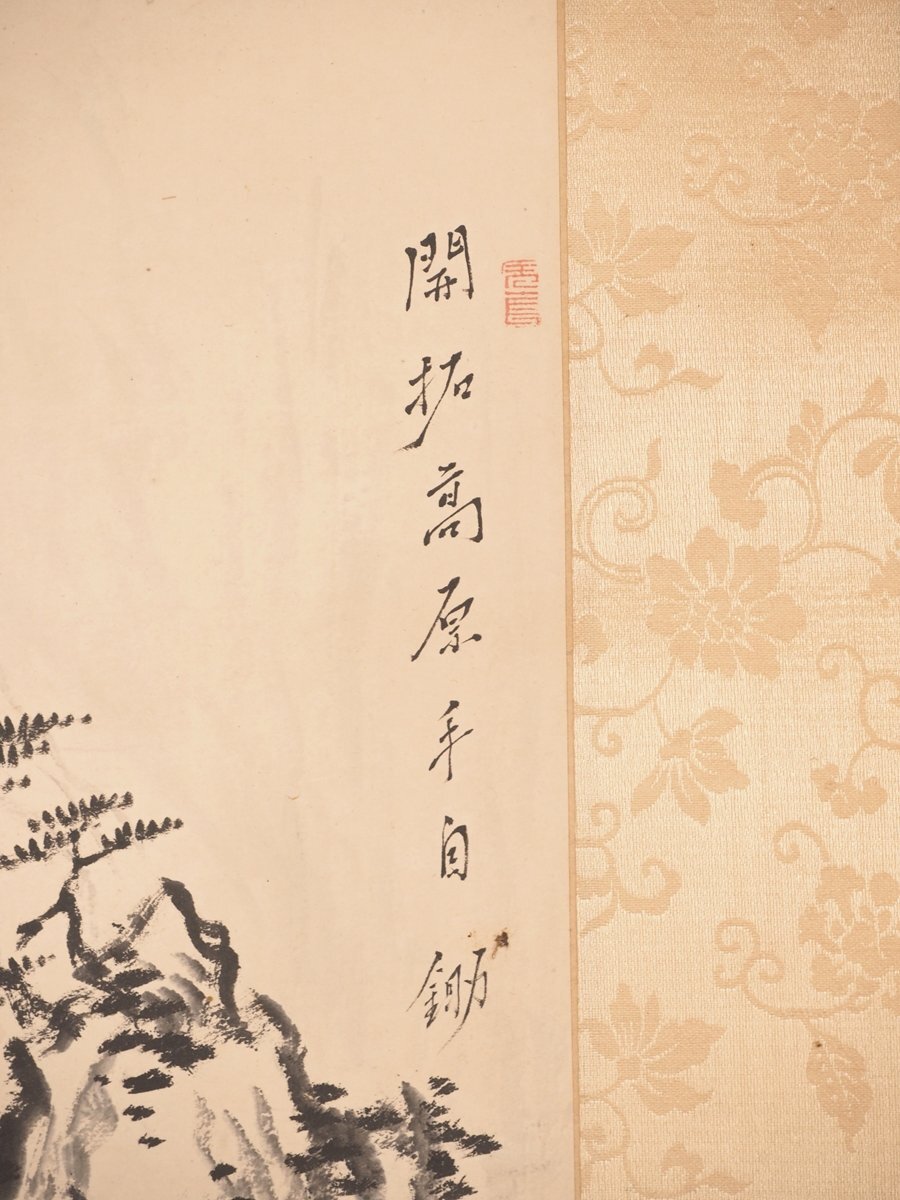 開拓高原手自鋤